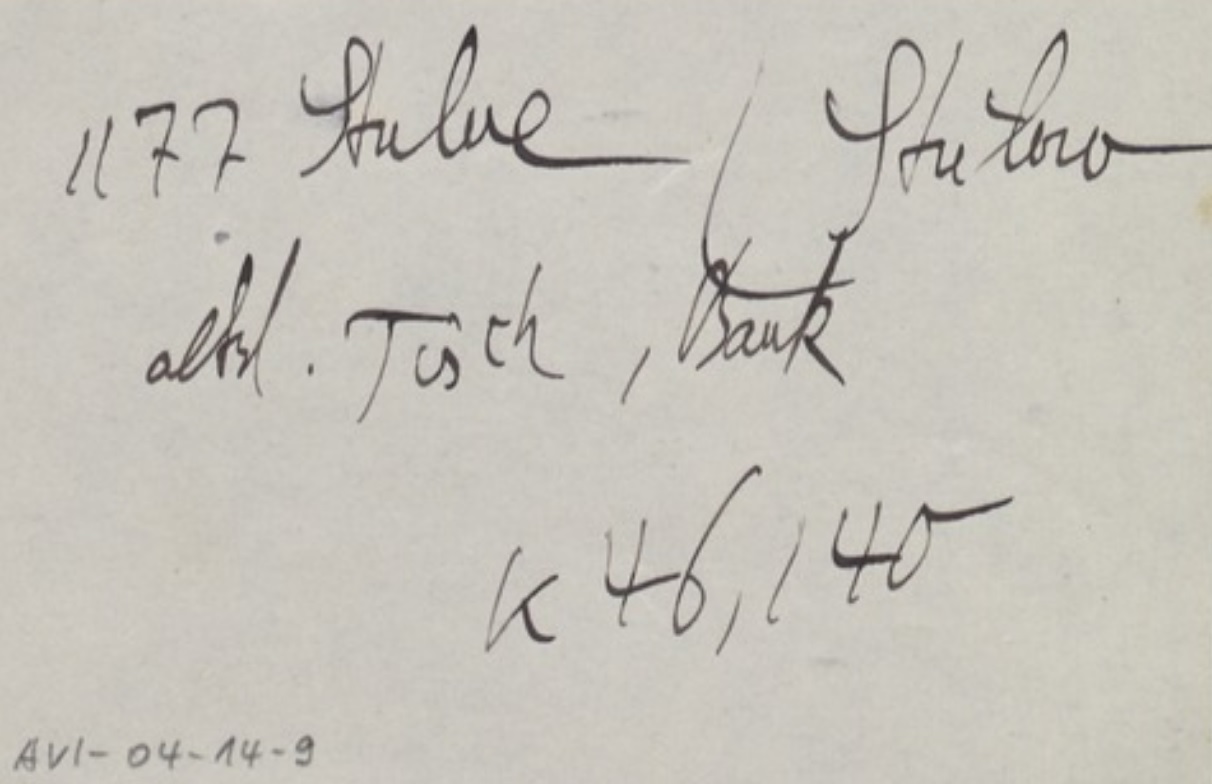 1177 Stulue / Stulow
altsl. Tisch, Bank
K 46, 140
AVI-04-14-9